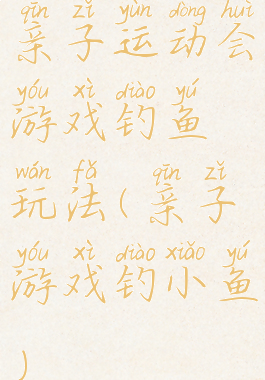 qīn zǐ yùn dòng huì
亲子运动会
yóu xì diào yú
游戏钓鱼
wán fǎ qīn zǐ
玩法(亲子
yóu xì diào xiǎo yú
游戏钓小鱼
)